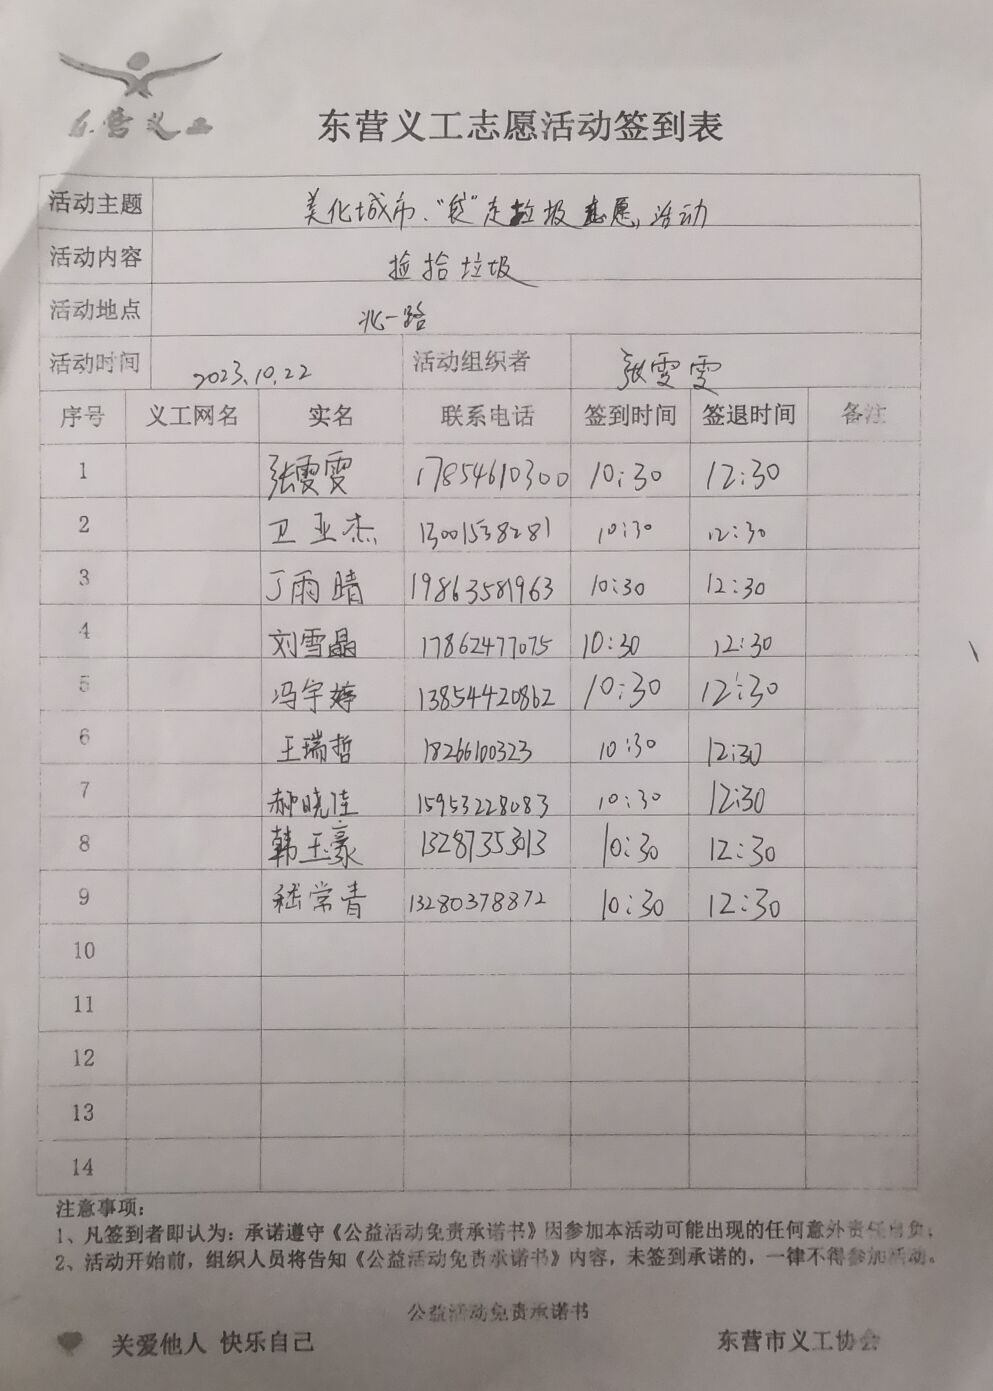 东营义工
东营义工志愿活动签到表
活动主题 美化城市、“袋”走垃圾志愿活动
活动内容 捡拾垃圾
活动地点 北一路
活动时间 2023.10.22 活动组织者 张雯雯
序号 义工网名 实名 联系电话 签到时间 签退时间 备注
1 张雯雯 17854610300 10:30 12:30
2 卫亚杰 13001538281 10:30 12:30
3 丁雨晴 19863581963 10:30 12:30
4 刘雪晶 17862477075 10:30 12:30
5 冯宇婷 13854420862 10:30 12:30
6 王瑞哲 18266100323 10:30 12:30
7 郝晓佳 15953228083 10:30 12:30
8 韩玉豪 13287353013 10:30 12:30
9 嵇常青 13280378872 10:30 12:30
10
11
12
13
14
注意事项：
1、凡签到者即认为：承诺遵守《公益活动免责承诺书》因参加本活动可能出现的任何意外责任自负。
2、活动开始前，组织人员将告知《公益活动免责承诺书》内容，未签到承诺的，一律不得参加活动。
公益活动免责承诺书
关爱他人 快乐自己 东营市义工协会